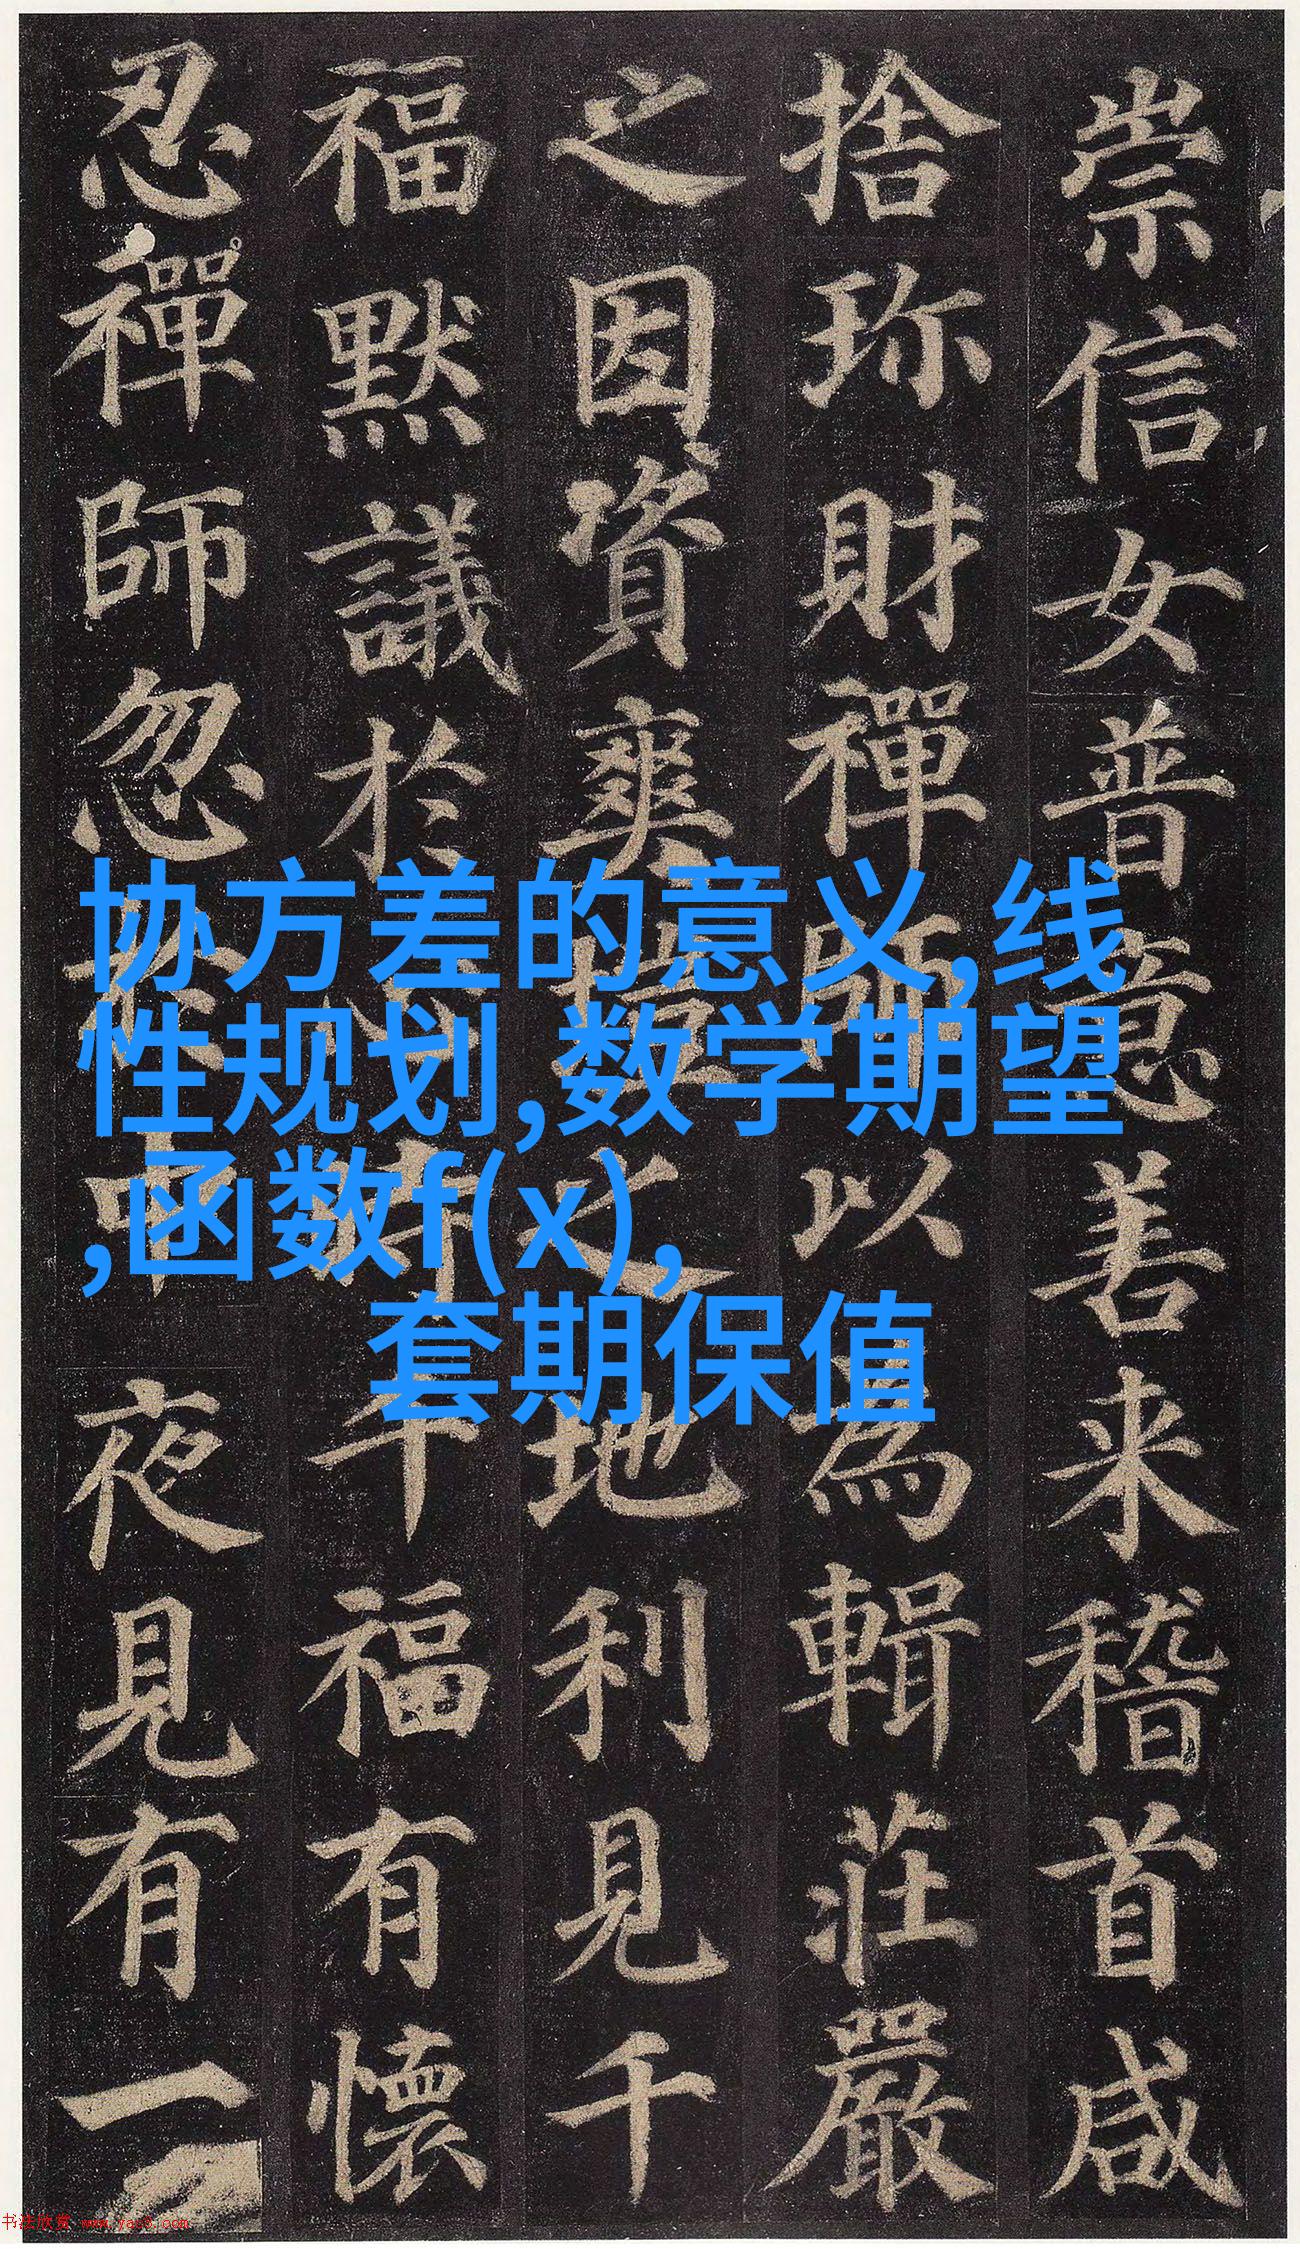 崇信女普意善来稽首咸
捨珎財禪師以為輯莊嚴
之因資爽塏之地利見千
福默議於心時千福有懷
忍禪師忽於中夜見有一
协方差的意义,线
性规划,数学期望
,函数f(x),
套期保值
书法欣赏 www.yac8.com